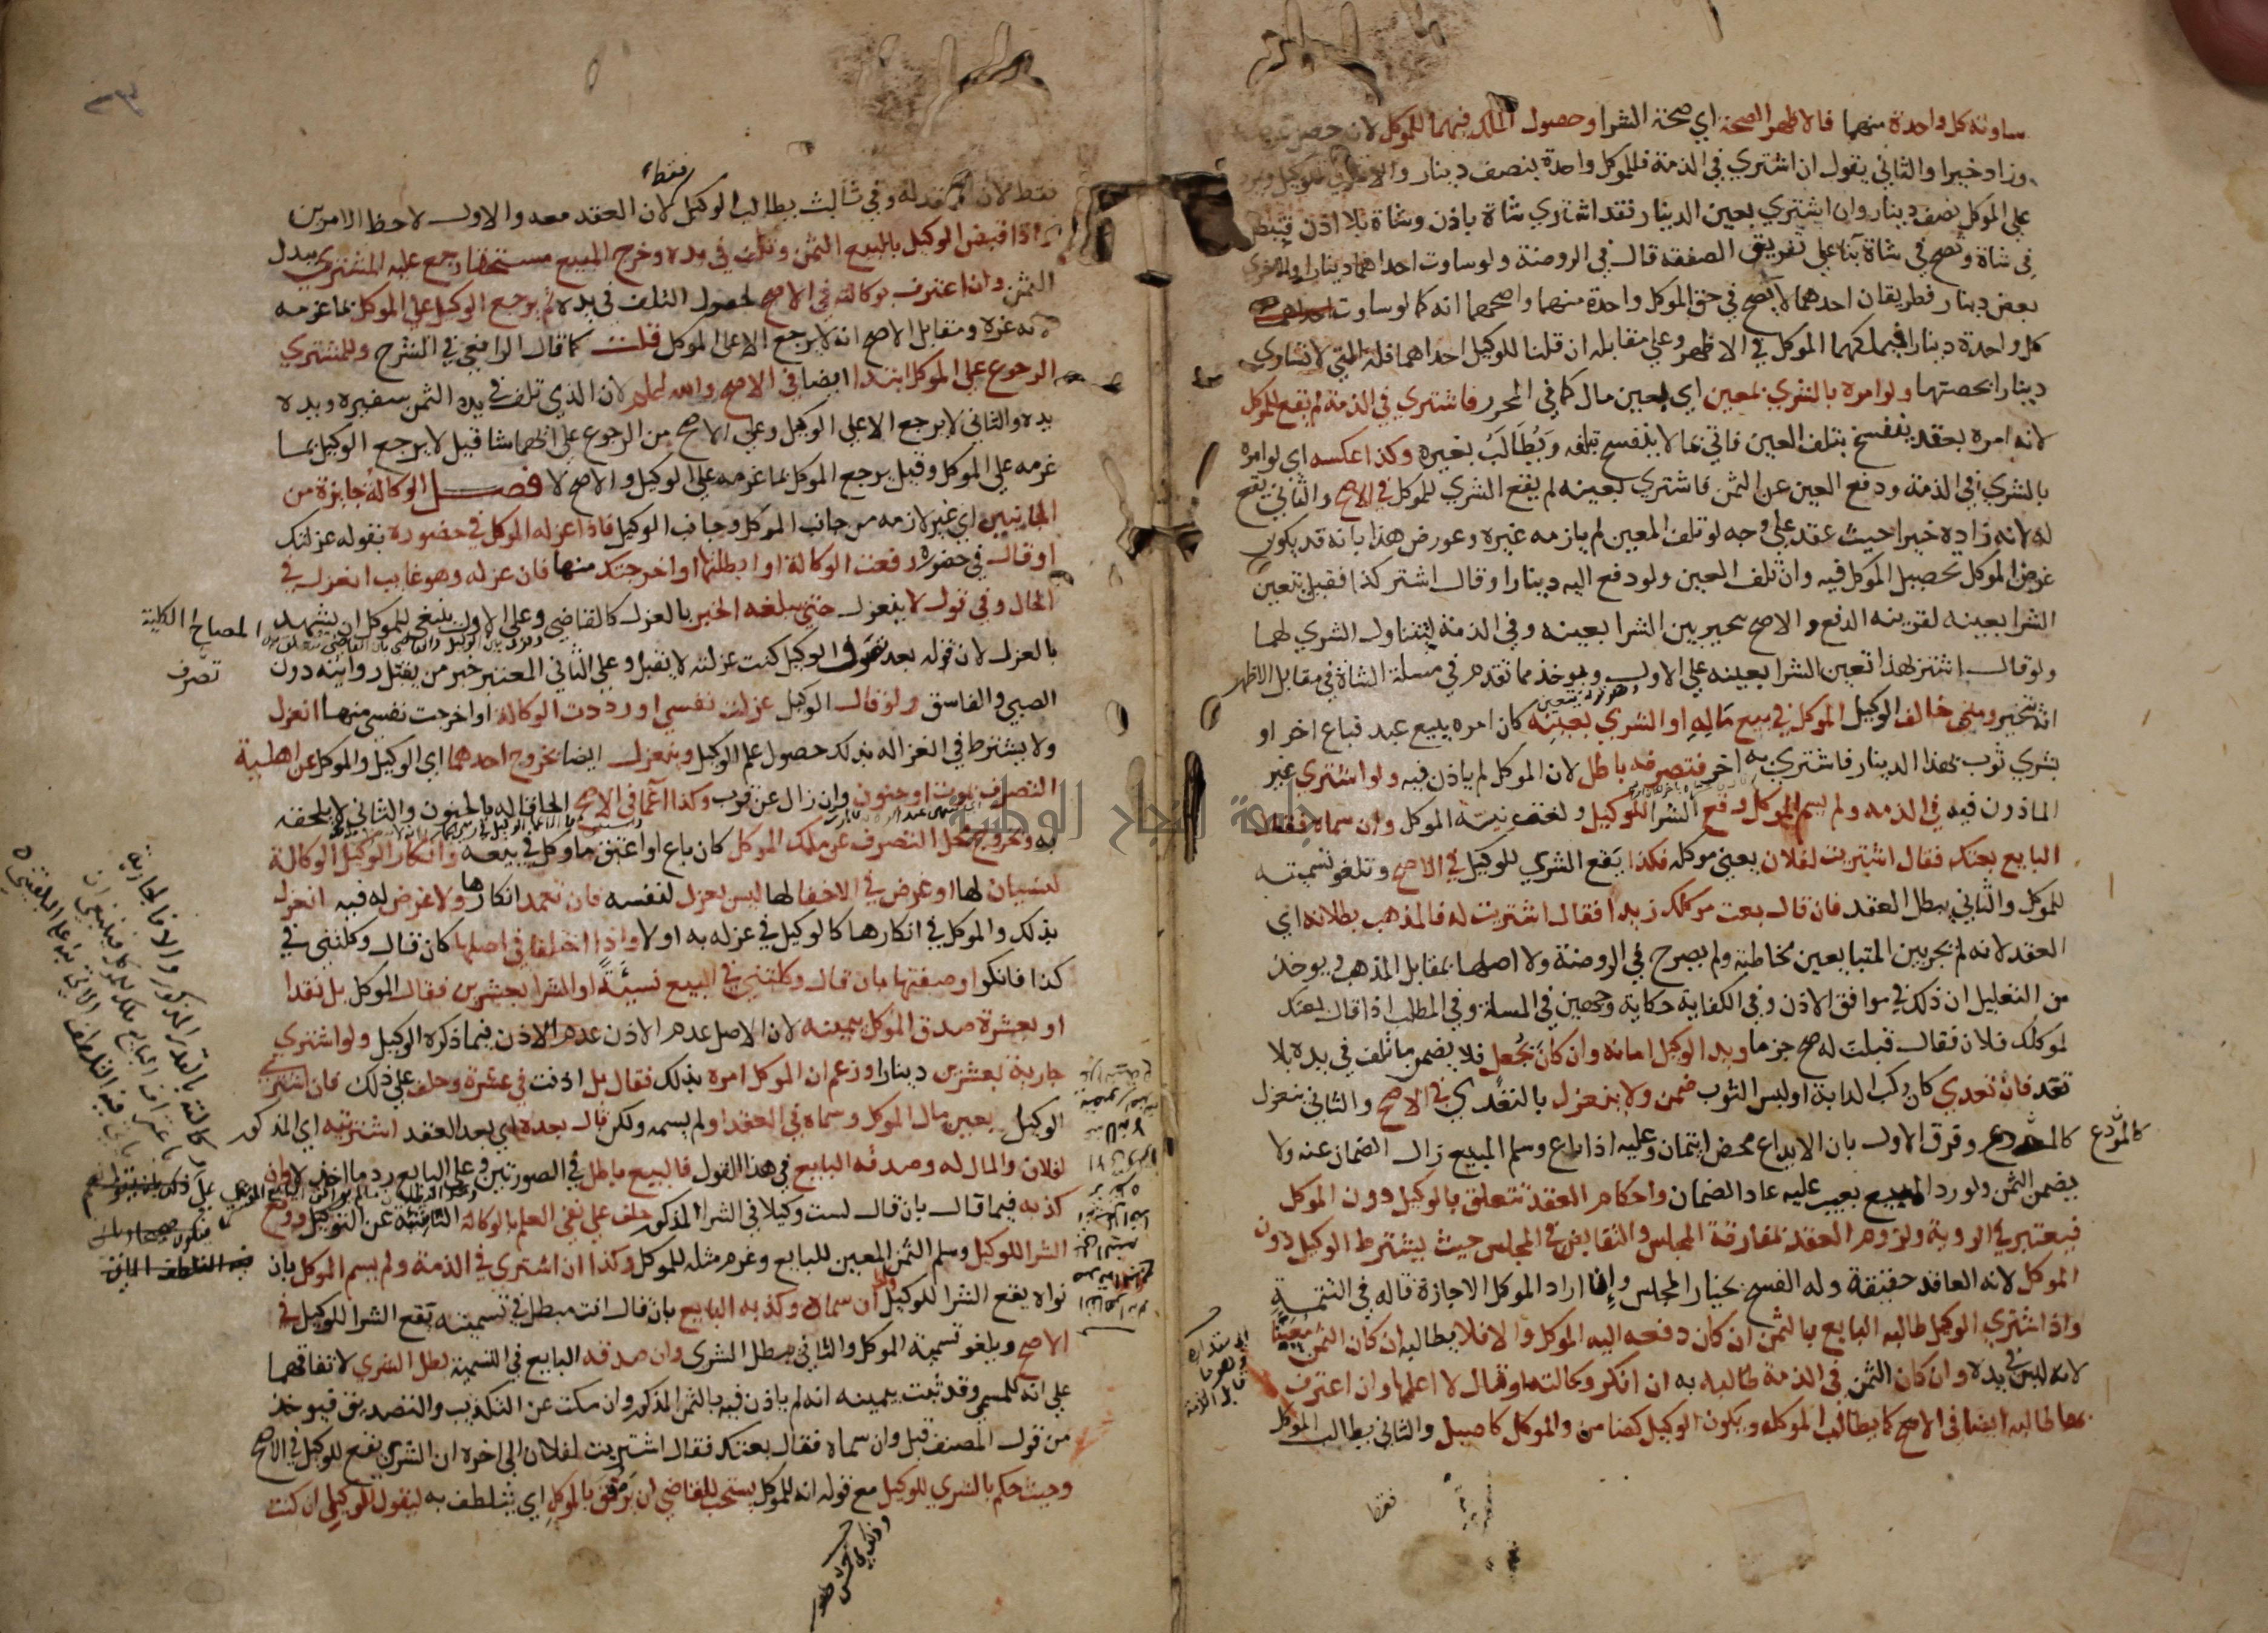 ساوته كل واحدة منهما فالاظهر الصحة اي صحة الشرا وحصول الملك فيهما للموكل لانه حصل
وزاد خيرا والثاني يقول ان اشتري في الذمة فللموكل واحدة بنصف دينار والاخري للوكيل ويرد
علي الموكل نصف دينار وان اشتري بعين الدينار فقد اشتري شاة باذن وشاة بلا اذن فيبطل
في شاة وتصح في شاة بنا علي تفريق الصفقة قال في الروضة ولو ساوت احداهما دينارا والاخري
بعض دينار فطريقان احدهما لا يصح في حق الموكل واحدة منهما واصحهما انه كما لو ساوت
كل واحدة دينارا فيملكهما الموكل في الاظهر وعلي مقابله ان قلنا للوكيل احداهما فله التي لا تساوي
دينارا بحصتها ولو امره بالشري بمعين اي بعين مال كما في المحرر فاشتري في الذمة لم يقع للموكل
لانه امره بعقد ينفسخ بتلف العين فاتي بما لا ينفسخ بتلفه ويطالب بغيره وكذا عكسه اي لو امره
بالشري في الذمة ودفع العين عن الثمن فاشتري بعينه لم يقع الشري للموكل في الاصح والثاني يقع
له لانه زاده خيرا حيث عقد علي وجه لو تلف المعين لم يلزمه غيره وعورض هذا بانه قد يكون
غرض الموكل تحصيل الموكل فيه وان تلف العين ولو دفع اليه دينارا وقال اشتر كذا فقيل يتعين
الشرا بعينه لقرينة الدفع والاصح تخيير بين الشرا بعينه وفي الذمة لتناول الشري لهما
ولو قال اشتر لهذا تعين الشرا بعينه علي الاول ويوخذ مما تقدم في مسلة الشاة في مقابل الاظهر
انه تخير ومتي خالف الوكيل الموكل في بيع ماله او الشري بعينه كان امره ببيع عبد فباع اخر او
بشري ثوب بهذا الدينار فاشتري به اخر فتصرفه باطل لان الموكل لم ياذن فيه ولو اشتري غير
الماذون فيه في الذمه ولم يسم الموكل وقع الشرا للوكيل ولغت نيته الموكل وان سماه فقال
البايع بعتك فقال اشتريت لفلان يعني موكله فكذا يقع الشري للوكيل في الاصح وتلغو تسميته
للموكل والثاني يبطل العقد فان قال بعت موكلك زيدا فقال اشتريت له فالمذهب بطلانه اي
العقد لانه لم يجر بين المتبايعين مخاطبة ولم يصرح في الروضة ولا اصلها بمقابل المذهب ويوخذ
من التعليل ان ذلك في موافق الاذن وفي الكفاية حكاية وجهين في المسلة وفي المطلب اذا قال بعتك
لموكلك فلان فقال قبلت له صح جزما ويد الوكيل امانه وان كان بجعل فلا يضمن ما تلف في يده بلا
تعد فان تعدي كان ركب الدابة او لبس الثوب ضمن ولا ينعزل بالتعدي في الاصح والثاني ينعزل
كالمودع
كالمودع وفرق الاول بان الايداع محض ايتمان وعليه اذا باع وسلم المبيع زال الضمان عنه ولا
يضمن الثمن ولو رد المبيع بعيب عليه عاد الضمان واحكام العقد تتعلق بالوكيل دون الموكل
فيعتبر في الروية ولزوم العقد بمفارقة المجلس والتقابض في المجلس حيث يشترط الوكيل دون
الموكل لانه العاقد حقيقة وله الفسخ بخيار المجلس وان اراد الموكل الاجازة قاله في التتمة
واذا اشتري الوكيل طالبه البايع بالثمن ان كان دفعه اليه الموكل والا فلا يطالبه ان كان الثمن معينا
لانه ليس في يده وان كان الثمن في الذمة طالبه به ان انكر وكالته او قال لا اعلمها وان اعترف
بها طالبه ايضا في الاصح كما يطالب الموكله ويكون الوكيل كضامن والموكل كاصيل والثاني يطالب الموكل
فقط
فقط
فقط لان العقد له وفي ثالث يطالب الوكيل لان العقد معه والاول لاحظ الامرين
واذا قبض الوكيل بالبيع الثمن وتلف في يده وخرج المبيع مستحقا رجع عليه المشتري ببدل
الثمن وان اعترف بوكالته في الاصح لحصول التلف في يده ثم يرجع الوكيل علي الموكل بما غرمه
لانه غره ومقابل الاصح انه لا يرجع الا علي الموكل قلت كما قال الرافعي في الشرح وللمشتري
الرجوع علي الموكل ابتدا ايضا في الاصح والله اعلم لان الذي تلف في يده الثمن سفيره ويده
يده والثاني لا يرجع الا علي الوكيل وعلي الاصح من الرجوع علي ايهما شا قيل لا يرجع الوكيل بما
غرمه علي الموكل وقيل يرجع الموكل بما غرمه علي الوكيل والاصح لا فصل الوكالة جايزة من
الجانبين اي غير لازمه من جانب الموكل وجانب الوكيل فاذا عزله الموكل في حضوره بقوله عزلتك
او قال في حضوره رفعت الوكالة او ابطلتها او اخرجتك منها فان عزله وهو غايب انعزل في
الحال وفي قول لا ينعزل حتي يبلغه الخبر بالعزل كالقاضي وعلي الاول ينبغي للموكل ان يشهد
المصباح الكلية
تصرف
بالعزل لان قوله بعد تصرف الوكيل كنت عزلته لا يقبل وعلي الثاني المعتبر خبر من يقبل روايته دون
الصبي والفاسق ولو قال الوكيل عزلت نفسي او رددت الوكالة او اخرجت نفسي منها انعزل
ولا يشترط في انعزاله بذلك حصول علم الوكيل وينعزل ايضا بخروج احدهما اي الوكيل والموكل عن اهلية
التصرف بموت او جنون وان زال عن قرب وكذا اغما في الاصح الحاقا له بالجنون والثاني لا يلحقه
به وبخروج محل التصرف عن ملك الموكل كان باع او اعتق ما وكل في بيعه وانكار الوكيل الوكالة
لنسيان لها او غرض في الاخفا لها ليس بعزل لنفسه فان تعمد انكارها ولا غرض له فيه انعزل
بذلك والموكل في انكارها كالوكيل في عزله به او لا واذا اختلفا في اصلها كان قال وكلتني في
كذا فانكر او صفتها بان قال وكلتني في البيع نسيئة او الشرا بعشرين فقال الموكل بل نقدا
او بعشرة صدق الموكل بيمينه لان الاصل عدم الاذن عدم الاذن فيما ذكره الوكيل ولو اشتري
جارية بعشرين دينارا وزعم ان الموكل امره بذلك فقال بل اذنت في عشرة وحلف علي ذلك فان اشتري
الوكيل بعين مال الموكل وسماه في العقد او لم يسمه ولكن قال بعده اي بعد العقد اشتريته اي المذكور
لفلان والمال له وصدقه البايع في هذا القول فالبيع باطل في الصورتين وعلي البايع رد ما اخذ وان
كذبه فيما قال بان قال لست وكيلا في الشرا المذكور حلف علي نفي العلم بالوكالة الناشئة عن التوكيل ووقع
الشرا للوكيل وسلم الثمن المعين للبايع وغرم مثله للموكل وكذا ان اشتري في الذمة ولم يسم الموكل بان
نواه يقع الشرا للوكيل وان سماه وكذبه البايع بان قال انت مبطل في تسميته يقع الشرا للوكيل في
الاصح ويلغو تسمية الموكل والثاني يبطل الشري وان صدقه البايع في التسمية بطل الشري لاتفاقهما
علي انه للمسمي وقد ثبت بيمينه انه لم ياذن فيه بالثمن المذكور وان سكت عن التكذيب والتصديق فيوخذ
من قول المصنف قبل وان سماه فقال بعتك فقال اشتريت لفلان الي اخره ان الشري يقع للوكيل في الاصح
وحيث حكم بالشري للوكيل مع قوله انه للموكل يستحب للقاضي ان يرفق بالموكل اي يتلطف به ليقول للوكيل ان كنت
جامعة النجاح الوطنية